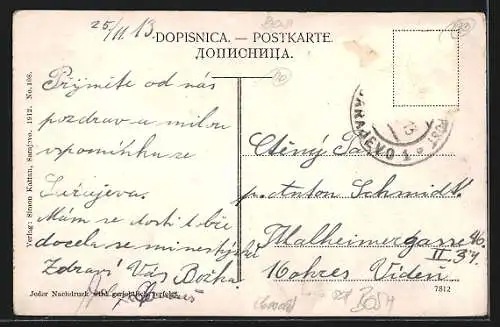 25/11 13.
DOPISNICA. — POSTKARTE.
ДОПИСНИЦА.
Přijměte od nás
pozdrav a milou
vzpomínku ze
Sarajeva.
Mám se dosti dobře
docela se mi nestýská
Zdraví Vás Božka
Ctěný Pán
p. Anton Schmidt
Malheimergasse 46.
II. 37.
16 okres Vídeň
SARAJEVO 1
Verlag: Simon Kattan, Sarajevo. 1912. No. 108.
Jeder Nachdruck wird gerichtlich verfolgt.
7812